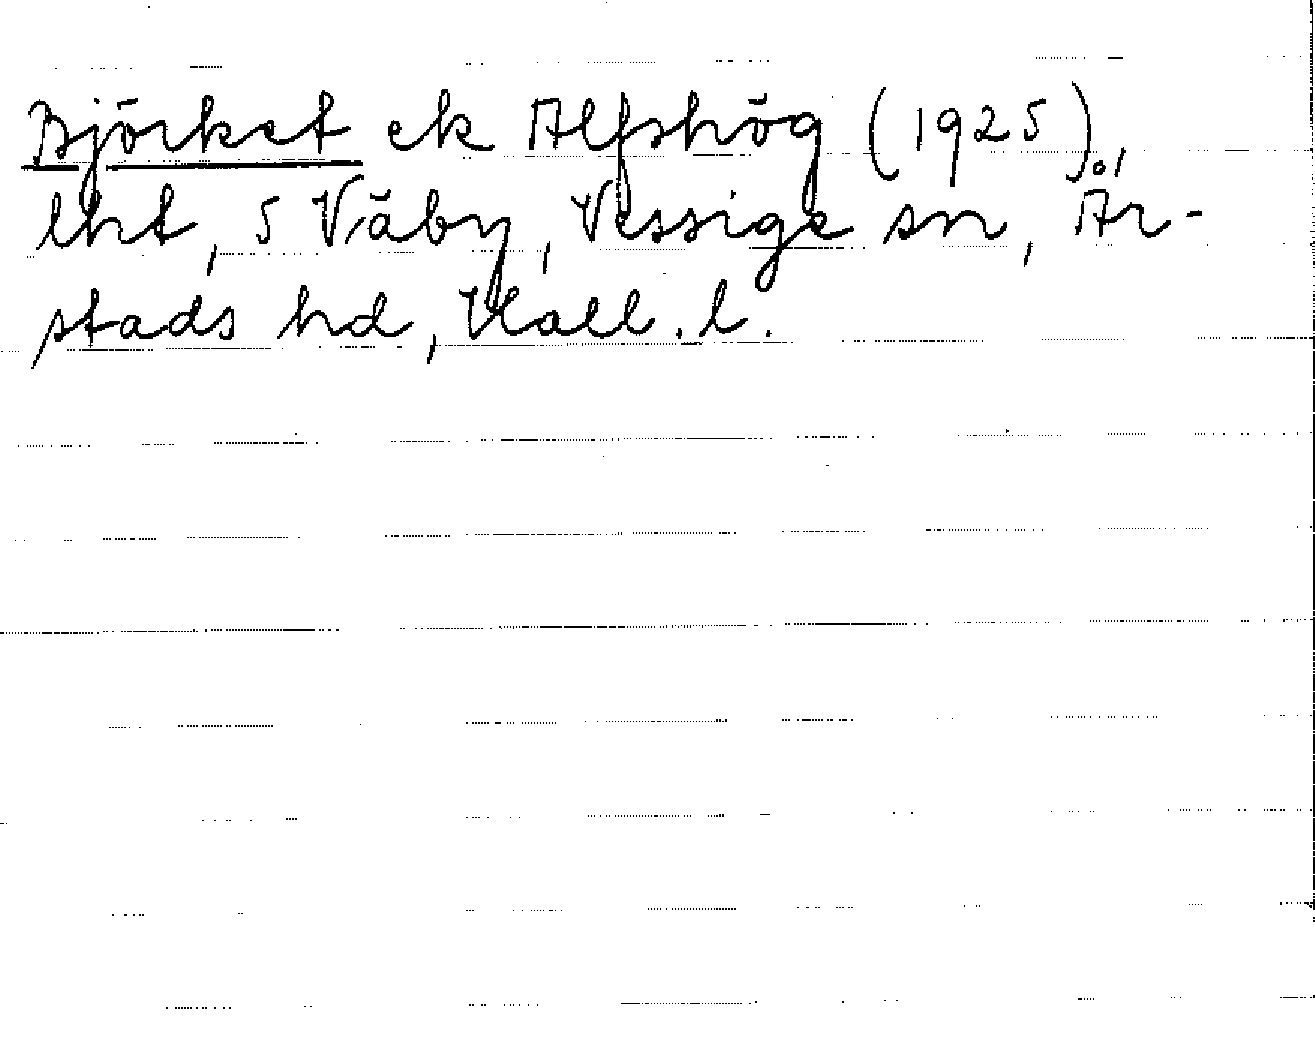 Björket ek Alfshög (1925),
lht, 5 Väby, Vessige sn, År-
stads hd, Hall. l.